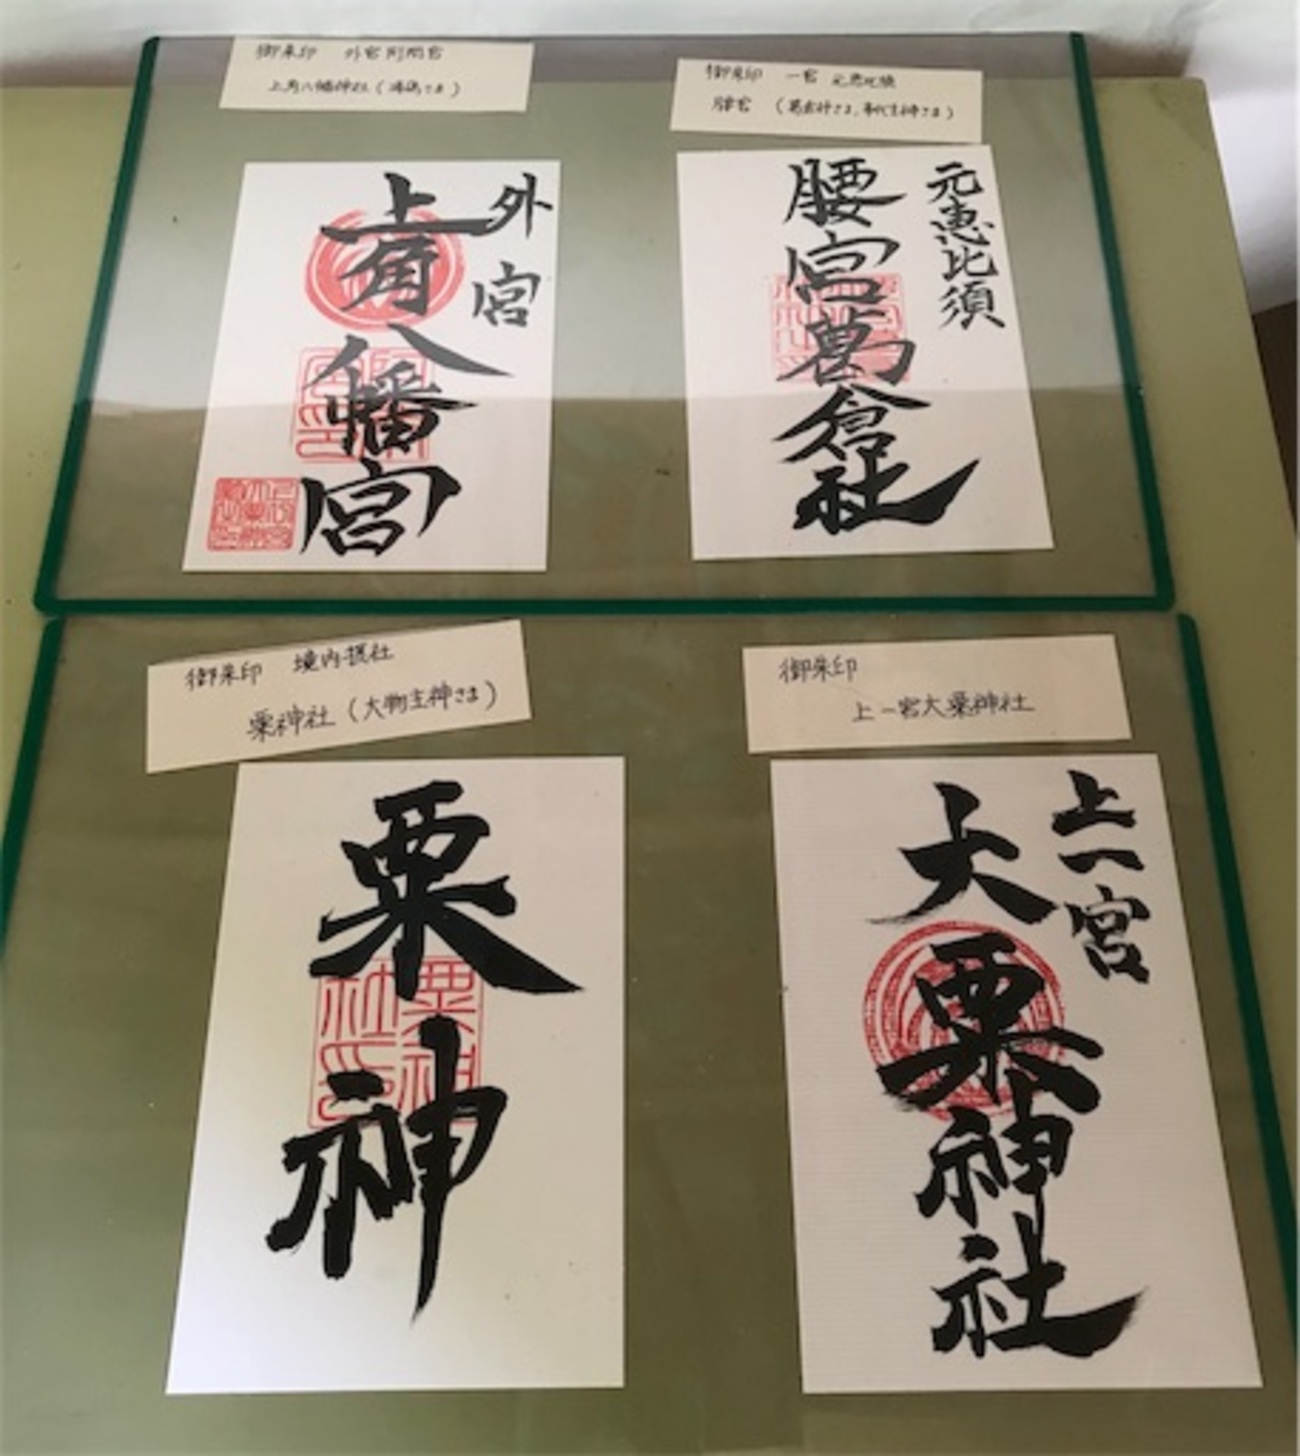 御朱印 外宮別閣宮
上角八幡神社（
外宮
上角八幡宮
御朱印 一宮 元恵比須
腰宮（葛倉神さま、事代主神さま）
元恵比須
腰宮葛倉社
御朱印 境内摂社
粟神社（大物主神さま）
粟神
粟神社印
御朱印
上一宮大粟神社
上一宮
大粟神社